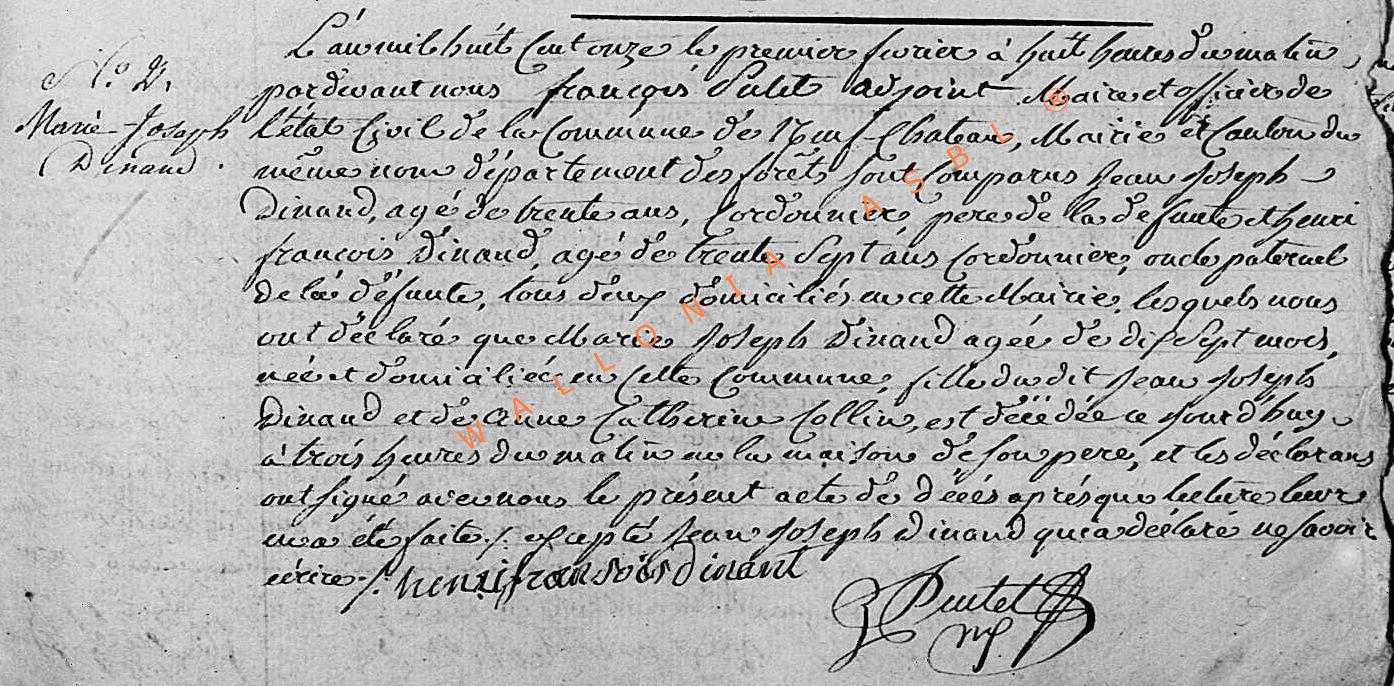 N.° 2.
Marie-Joseph
Dinand.
L'an mil huit cent onze le premier fevrier à huit heures du matin,
pardevant nous françois adjoint Maire et officier de
l'état Civil de la Commune de Neufchateau, Mairie et Canton du
même nom département des forêts sont comparus Jean Joseph
Dinand, agé de trente ans, Cordonnier, pere de la defunte et henri
françois Dinand, agé de trente sept ans Cordonnier, oncle paternel
de la défunte, tous deux domiciliés en cette Mairie, lesquels nous
ont déclaré que Marie Joseph Dinand agée de dix sept mois,
née et domiciliée en cette Commune, fille du dit Jean Joseph
Dinand et de Anne Catherine Collin, est décédée ce jourd'huy
à trois heures du matin en la maison de son pere, et les déclarans
ont signé avec nous le présent acte de décés aprés que lecture leur
en a été faite ./. excepté Jean Joseph Dinand qui a déclaré ne savoir
écrire ./. henri fransois dinant
WALLONIA ASBL ©